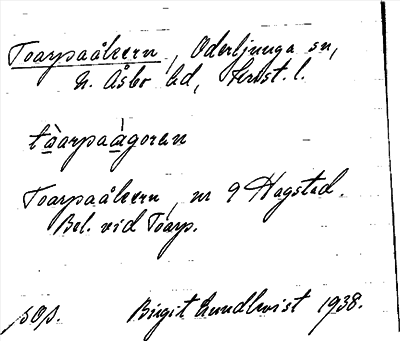 Toarpaåkern, Oderljunga sn,
N. Åsbo hd, Krist. l.
tàarpaàgoran
Toarpaåkern, nr 9 Hagstad.
Bel. vid Toarp.
sOp. Birgit Lundkvist 1938.